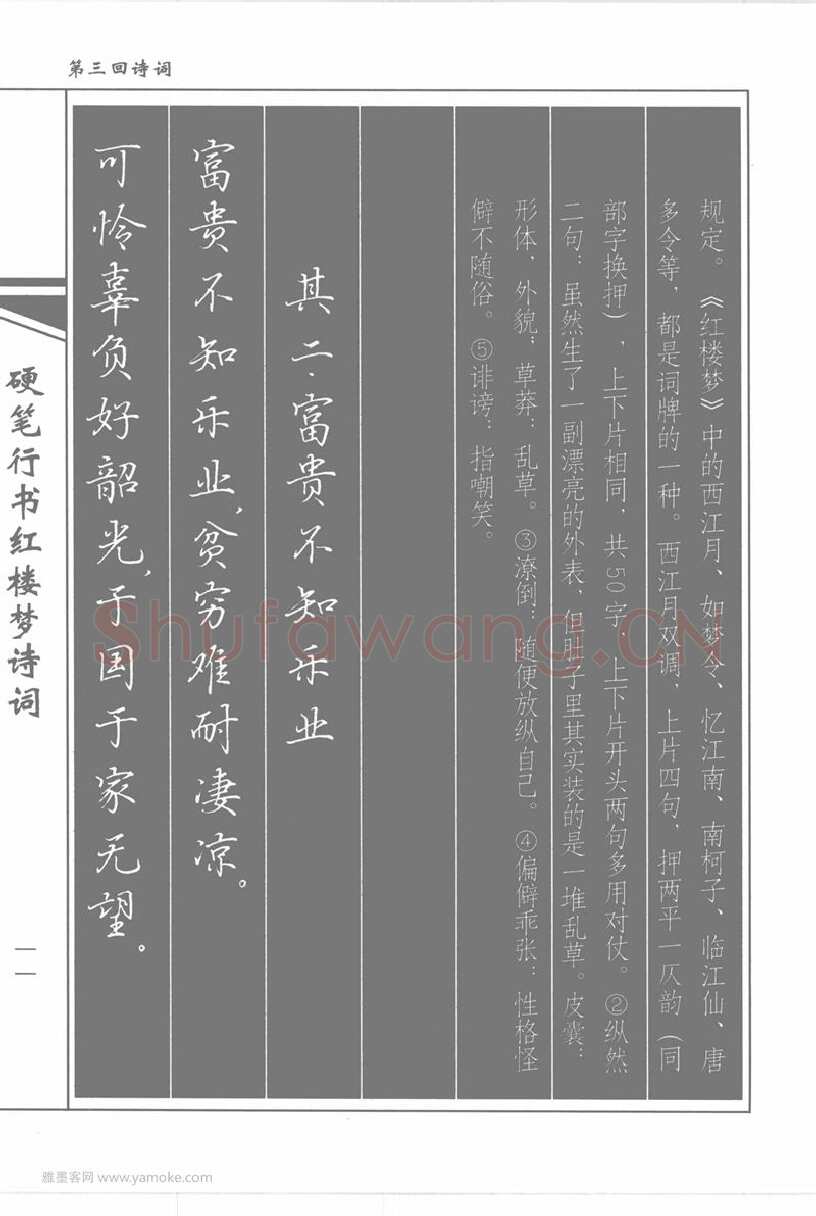 第三回诗词
规定。《红楼梦》中的西江月、如梦令、忆江南、南柯子、临江仙、唐
多令等，都是词牌的一种。西江月双调，上片四句，押两平一仄韵（同
部字换押），上下片相同，共50字，上下片开头两句多用对仗。②纵然
二句：虽然生了一副漂亮的外表，但肚子里其实装的是一堆乱草。皮囊：
形体，外貌；草莽：乱草。③潦倒：随便放纵自己。④偏僻乖张：性格怪
僻不随俗。⑤诽谤：指嘲笑。
其二·富贵不知乐业
富贵不知乐业，贫穷难耐凄凉。
可怜辜负好韶光，于国于家无望。
硬笔行书红楼梦诗词
一一
Shufawang.CN
雅墨客网 www.yamoke.com